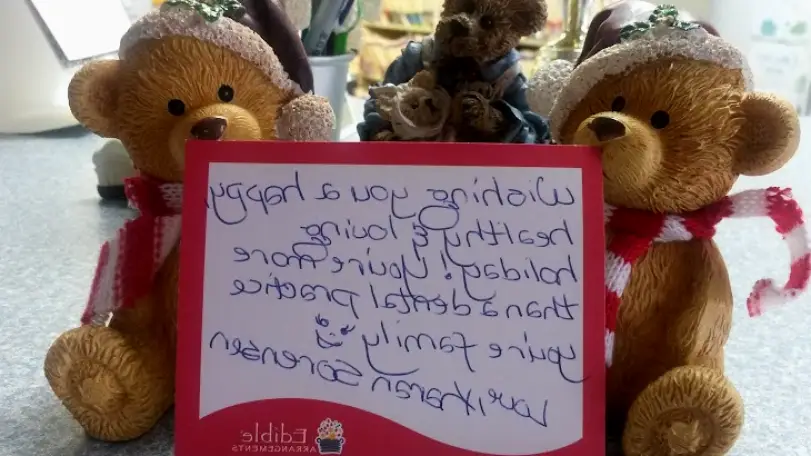 Wishing you a happy,
healthy & loving
holiday! You're more
than a dental practice
you're family
Karen Sorensen
Edible®
ARRANGEMENTS